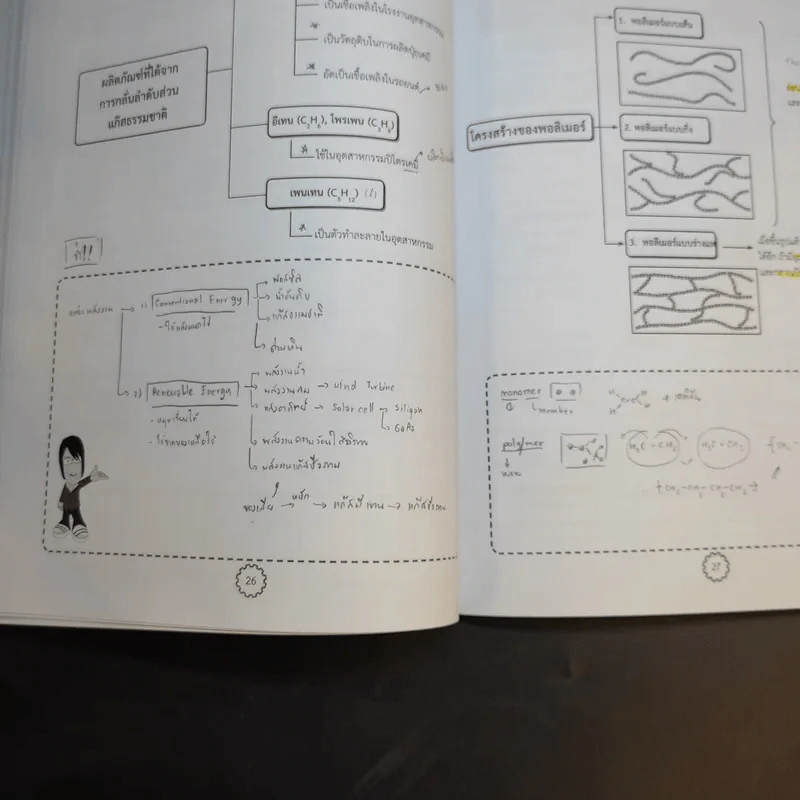 เป็นเชื้อเพลิงในโรงงานอุตสาหกรรม
เป็นวัตถุดิบในการผลิตปุ๋ยเคมี
อัดเป็นเชื้อเพลิงในรถยนต์
ผลิตภัณฑ์ที่ได้จาก
การกลั่นลำดับส่วน
แก๊สธรรมชาติ
อีเทน (C2H6), โพรเพน (C3H8)
ใช้ในอุตสาหกรรมปิโตรเคมี
เพนเทน (C5H12) (l)
เป็นตัวทำละลายในอุตสาหกรรม
1) Conventional Energy
- ใช้แล้วหมดไป
ฟอสซิล
น้ำมันดิบ
แก๊สธรรมชาติ
ถ่านหิน
2) Renewable Energy
- หมุนเวียนได้
พลังงานน้ำ
พลังงานลม → Wind Turbine
→ Solar cell → Silicon
GaAs
พลังงานความร้อนใต้พิภพ
พลังงานแก๊สชีวภาพ
ของเสีย → หมัก → แก๊สมีเทน → แก๊สชีวภาพ
26
โครงสร้างของพอลิเมอร์
1. พอลิเมอร์แบบเส้น
2. พอลิเมอร์แบบกิ่ง
3. พอลิเมอร์แบบร่างแห
monomer
member
polymer
H2C = CH2
H2C = CH2
CH2-CH2-CH2-CH2
27